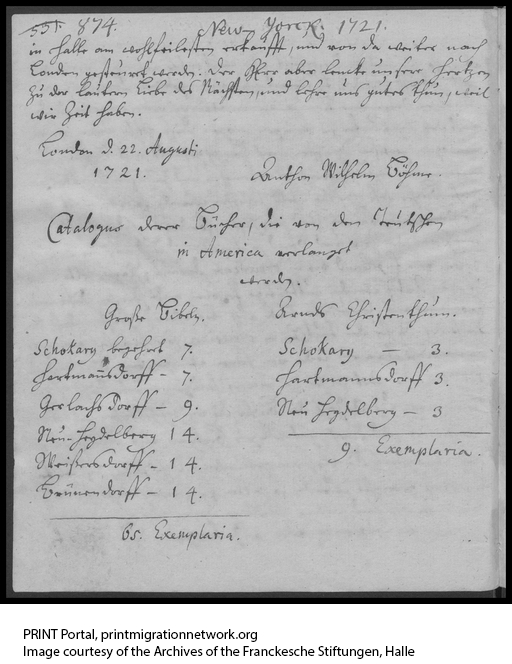 551. 874. New-Yorck. 1721.
in Halle am wohlfeilesten erkaufft, und von da weiter nach
London gesteuert werden. Der Herr aber lencke unsere Hertzen
zu der lautern Liebe des Nächsten, und lehre uns gutes thun, weil
wir Zeit haben.
London d. 22. Augusti
1721.
Anthon Wilhelm Böhme.
Catalogus derer Bücher, die von den Teutschen
in America verlanget
werden.
Große Bibeln.
Schokary begehrt 7.
Hartmannsdorff – 7.
Gerlachsdorff – 9.
Neu-Heydelberg 14.
Weißersdorff – 14.
Brunnendorff – 14.
65. Exemplaria.
Arnds Christenthum.
Schokary — 3.
Hartmannsdorff 3.
Neu Heydelberg – 3
9. Exemplaria.
PRINT Portal, printmigrationnetwork.org
Image courtesy of the Archives of the Franckesche Stiftungen, Halle